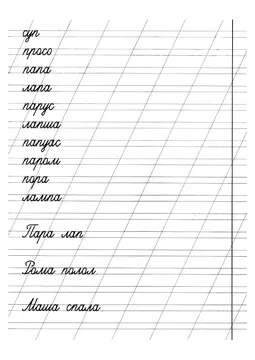 суп
просо
папа
лапа
парус
лапша
папуас
паром
пора
лампа
Пара лап.
Рома полол.
Маша спала.